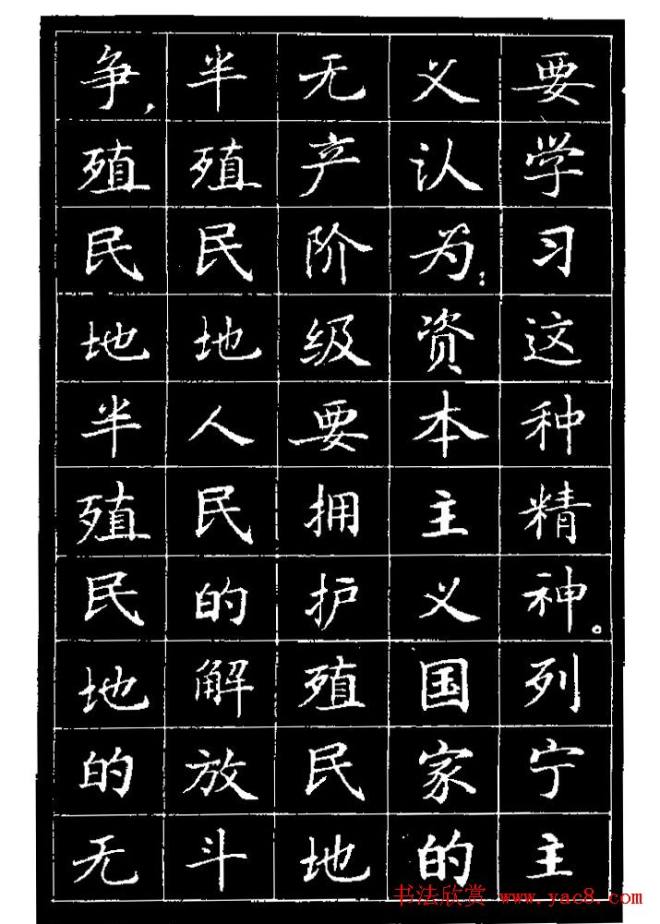 要学习这种精神。列宁主
义认为：资本主义国家的
无产阶级要拥护殖民地
半殖民地人民的解放斗
争，殖民地半殖民地的无
书法欣赏 www.yac8.com